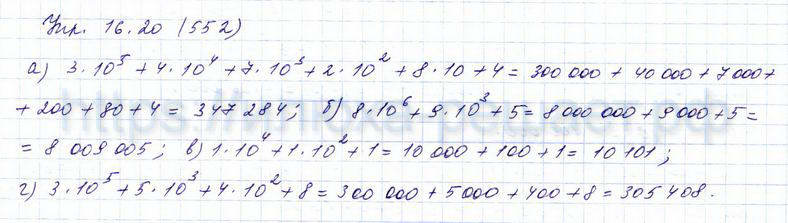 Упр. 16.20 (552)
а) 3·10⁵ + 4·10⁴ + 7·10³ + 2·10² + 8·10 + 4 = 300 000 + 40 000 + 7 000 +
+ 200 + 80 + 4 = 347 284; б) 8·10⁶ + 9·10³ + 5 = 8 000 000 + 9 000 + 5 =
= 8 009 005; в) 1·10⁴ + 1·10² + 1 = 10 000 + 100 + 1 = 10 101;
г) 3·10⁵ + 5·10³ + 4·10² + 8 = 300 000 + 5 000 + 400 + 8 = 305 408.